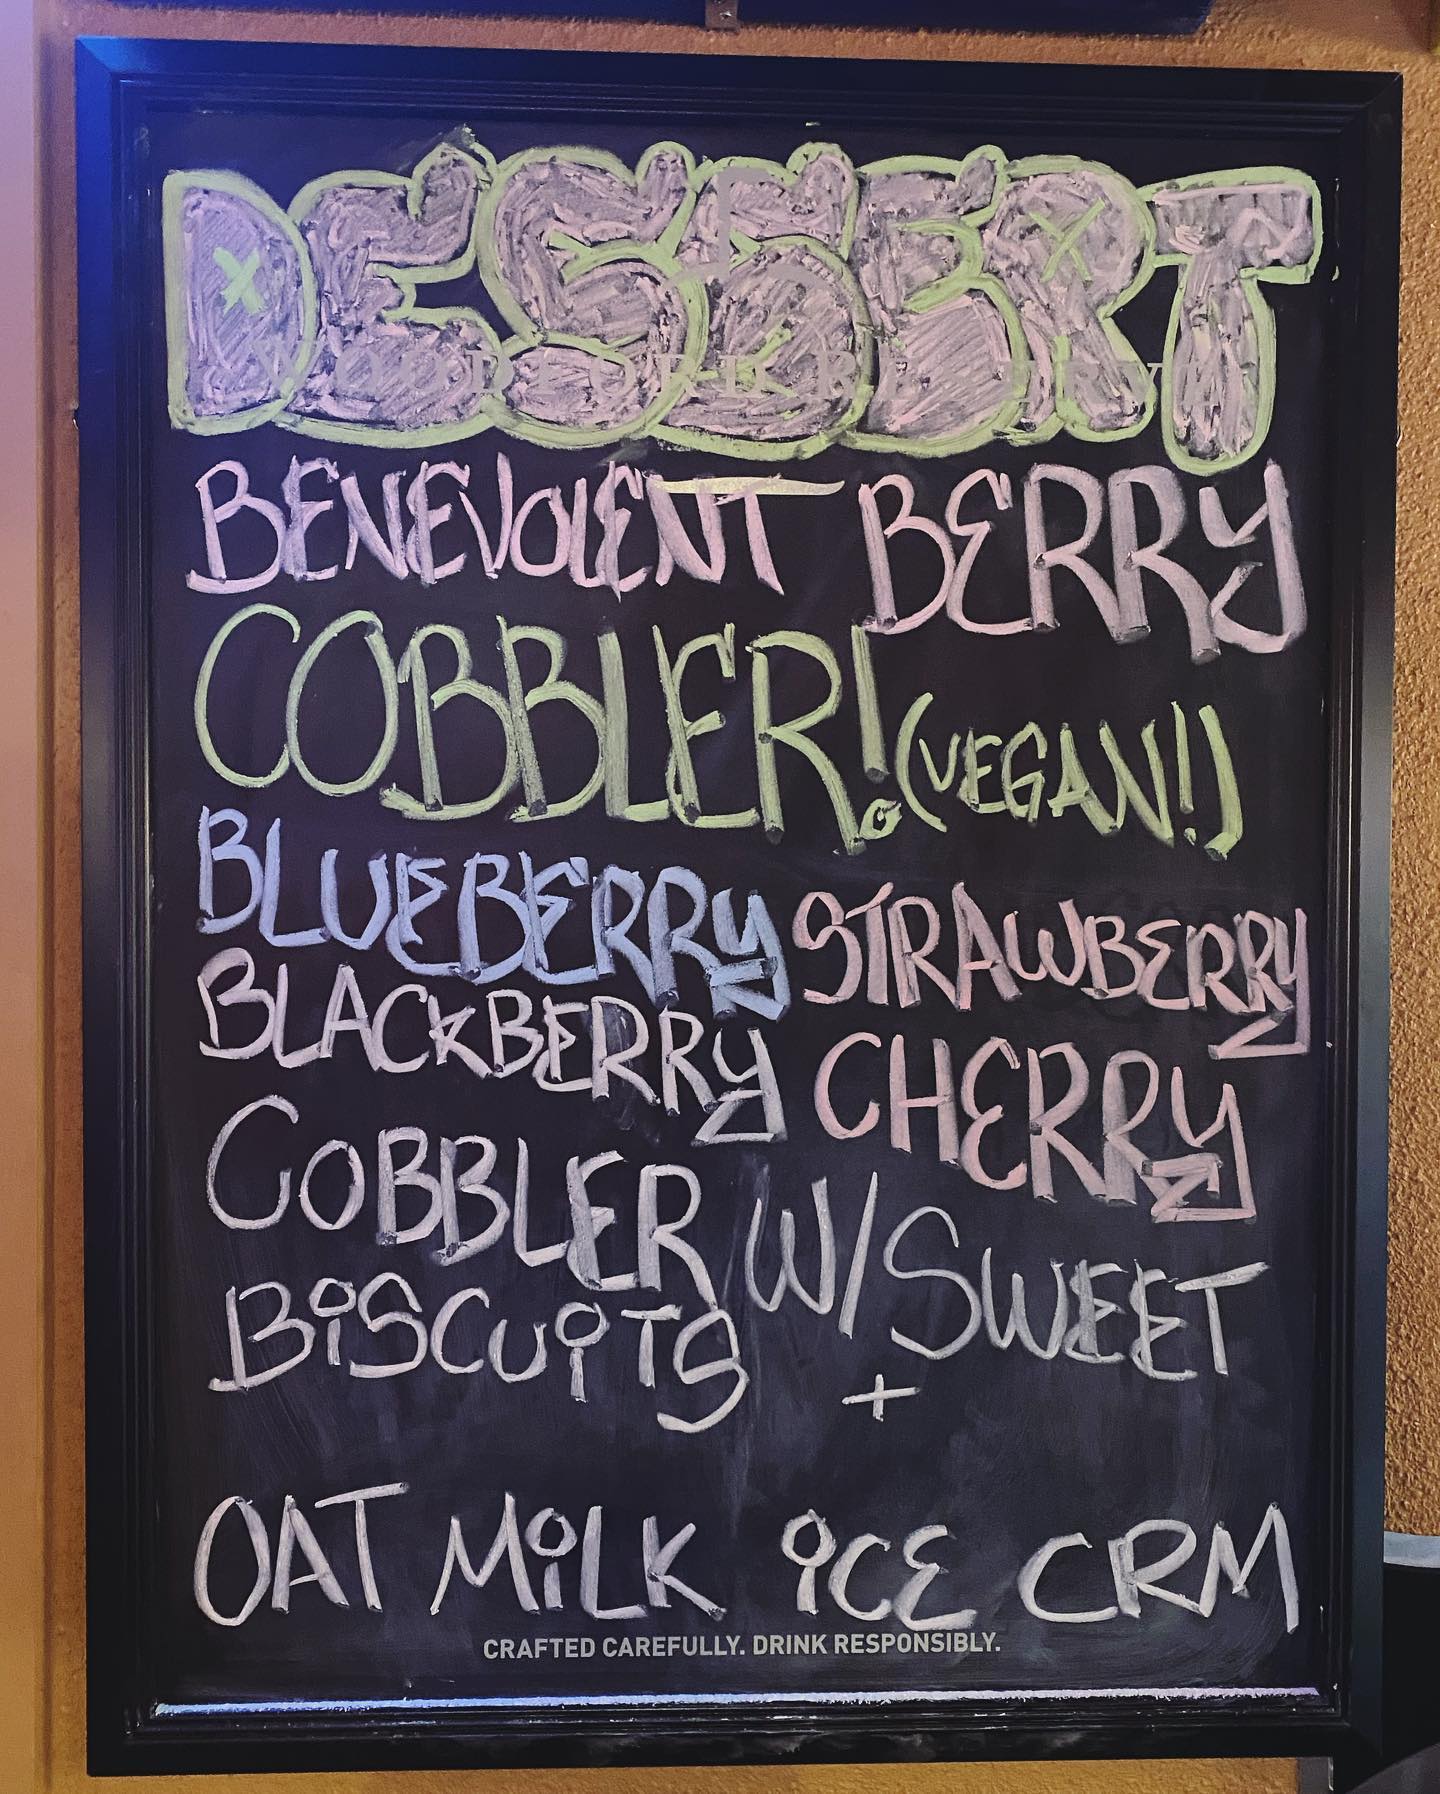 DESSERT
WOODFORD RESERVE
BENEVOLENT BERRY
COBBLER! (VEGAN!)
BLUEBERRY STRAWBERRY
BLACKBERRY CHERRY
COBBLER W/ SWEET
BiSCUiTS +
OAT MiLK iCE CRM
CRAFTED CAREFULLY. DRINK RESPONSIBLY.